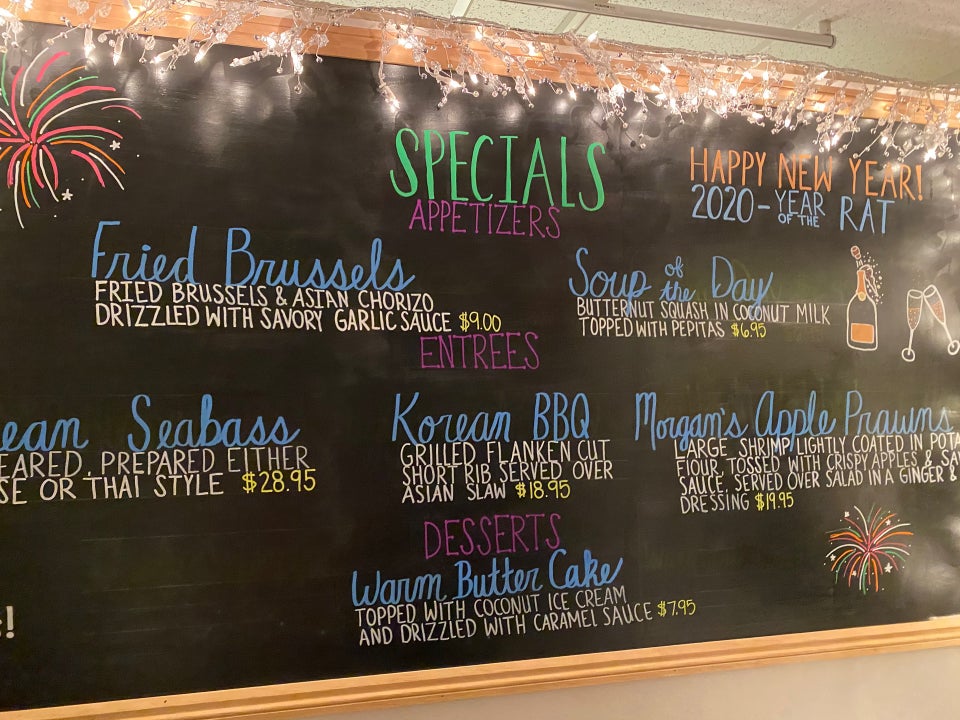 SPECIALS
APPETIZERS
HAPPY NEW YEAR!
2020 - YEAR OF THE RAT
Fried Brussels
FRIED BRUSSELS & ASIAN CHORIZO
DRIZZLED WITH SAVORY GARLIC SAUCE $9.00
Soup of the Day
BUTTERNUT SQUASH IN COCONUT MILK
TOPPED WITH PEPITAS $6.95
ENTREES
ean Seabass
EARED, PREPARED EITHER
SE OR THAI STYLE $28.95
Korean BBQ
GRILLED FLANKEN CUT
SHORT RIB SERVED OVER
ASIAN SLAW $18.95
Morgan's Apple Prawns
LARGE SHRIMP LIGHTLY COATED IN POTA
FLOUR, TOSSED WITH CRISPY APPLES & SA
SAUCE, SERVED OVER SALAD IN A GINGER &
DRESSING $19.95
DESSERTS
Warm Butter Cake
TOPPED WITH COCONUT ICE CREAM
AND DRIZZLED WITH CARAMEL SAUCE $7.95